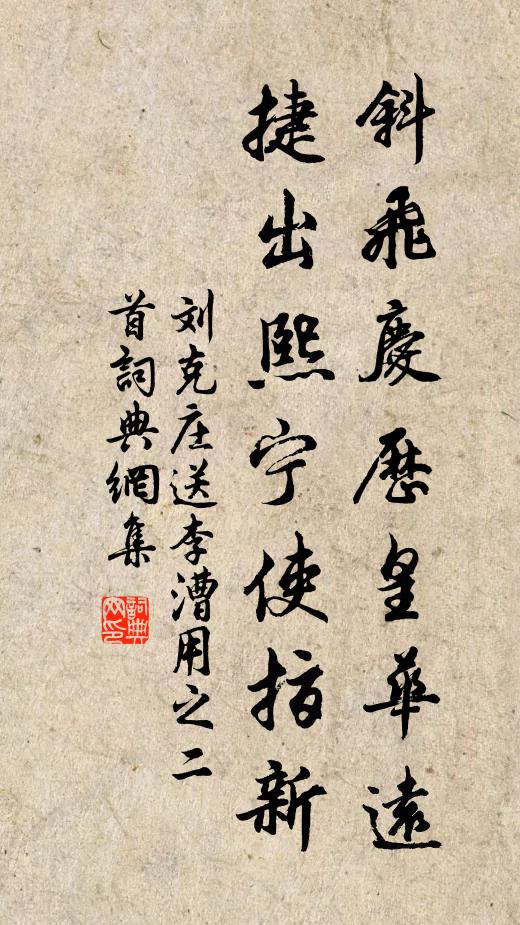 斜飛慶歷皇華遠
捷出熙宁使指新
刘克庄送李漕用之二
首詞典網集
詞典
网印